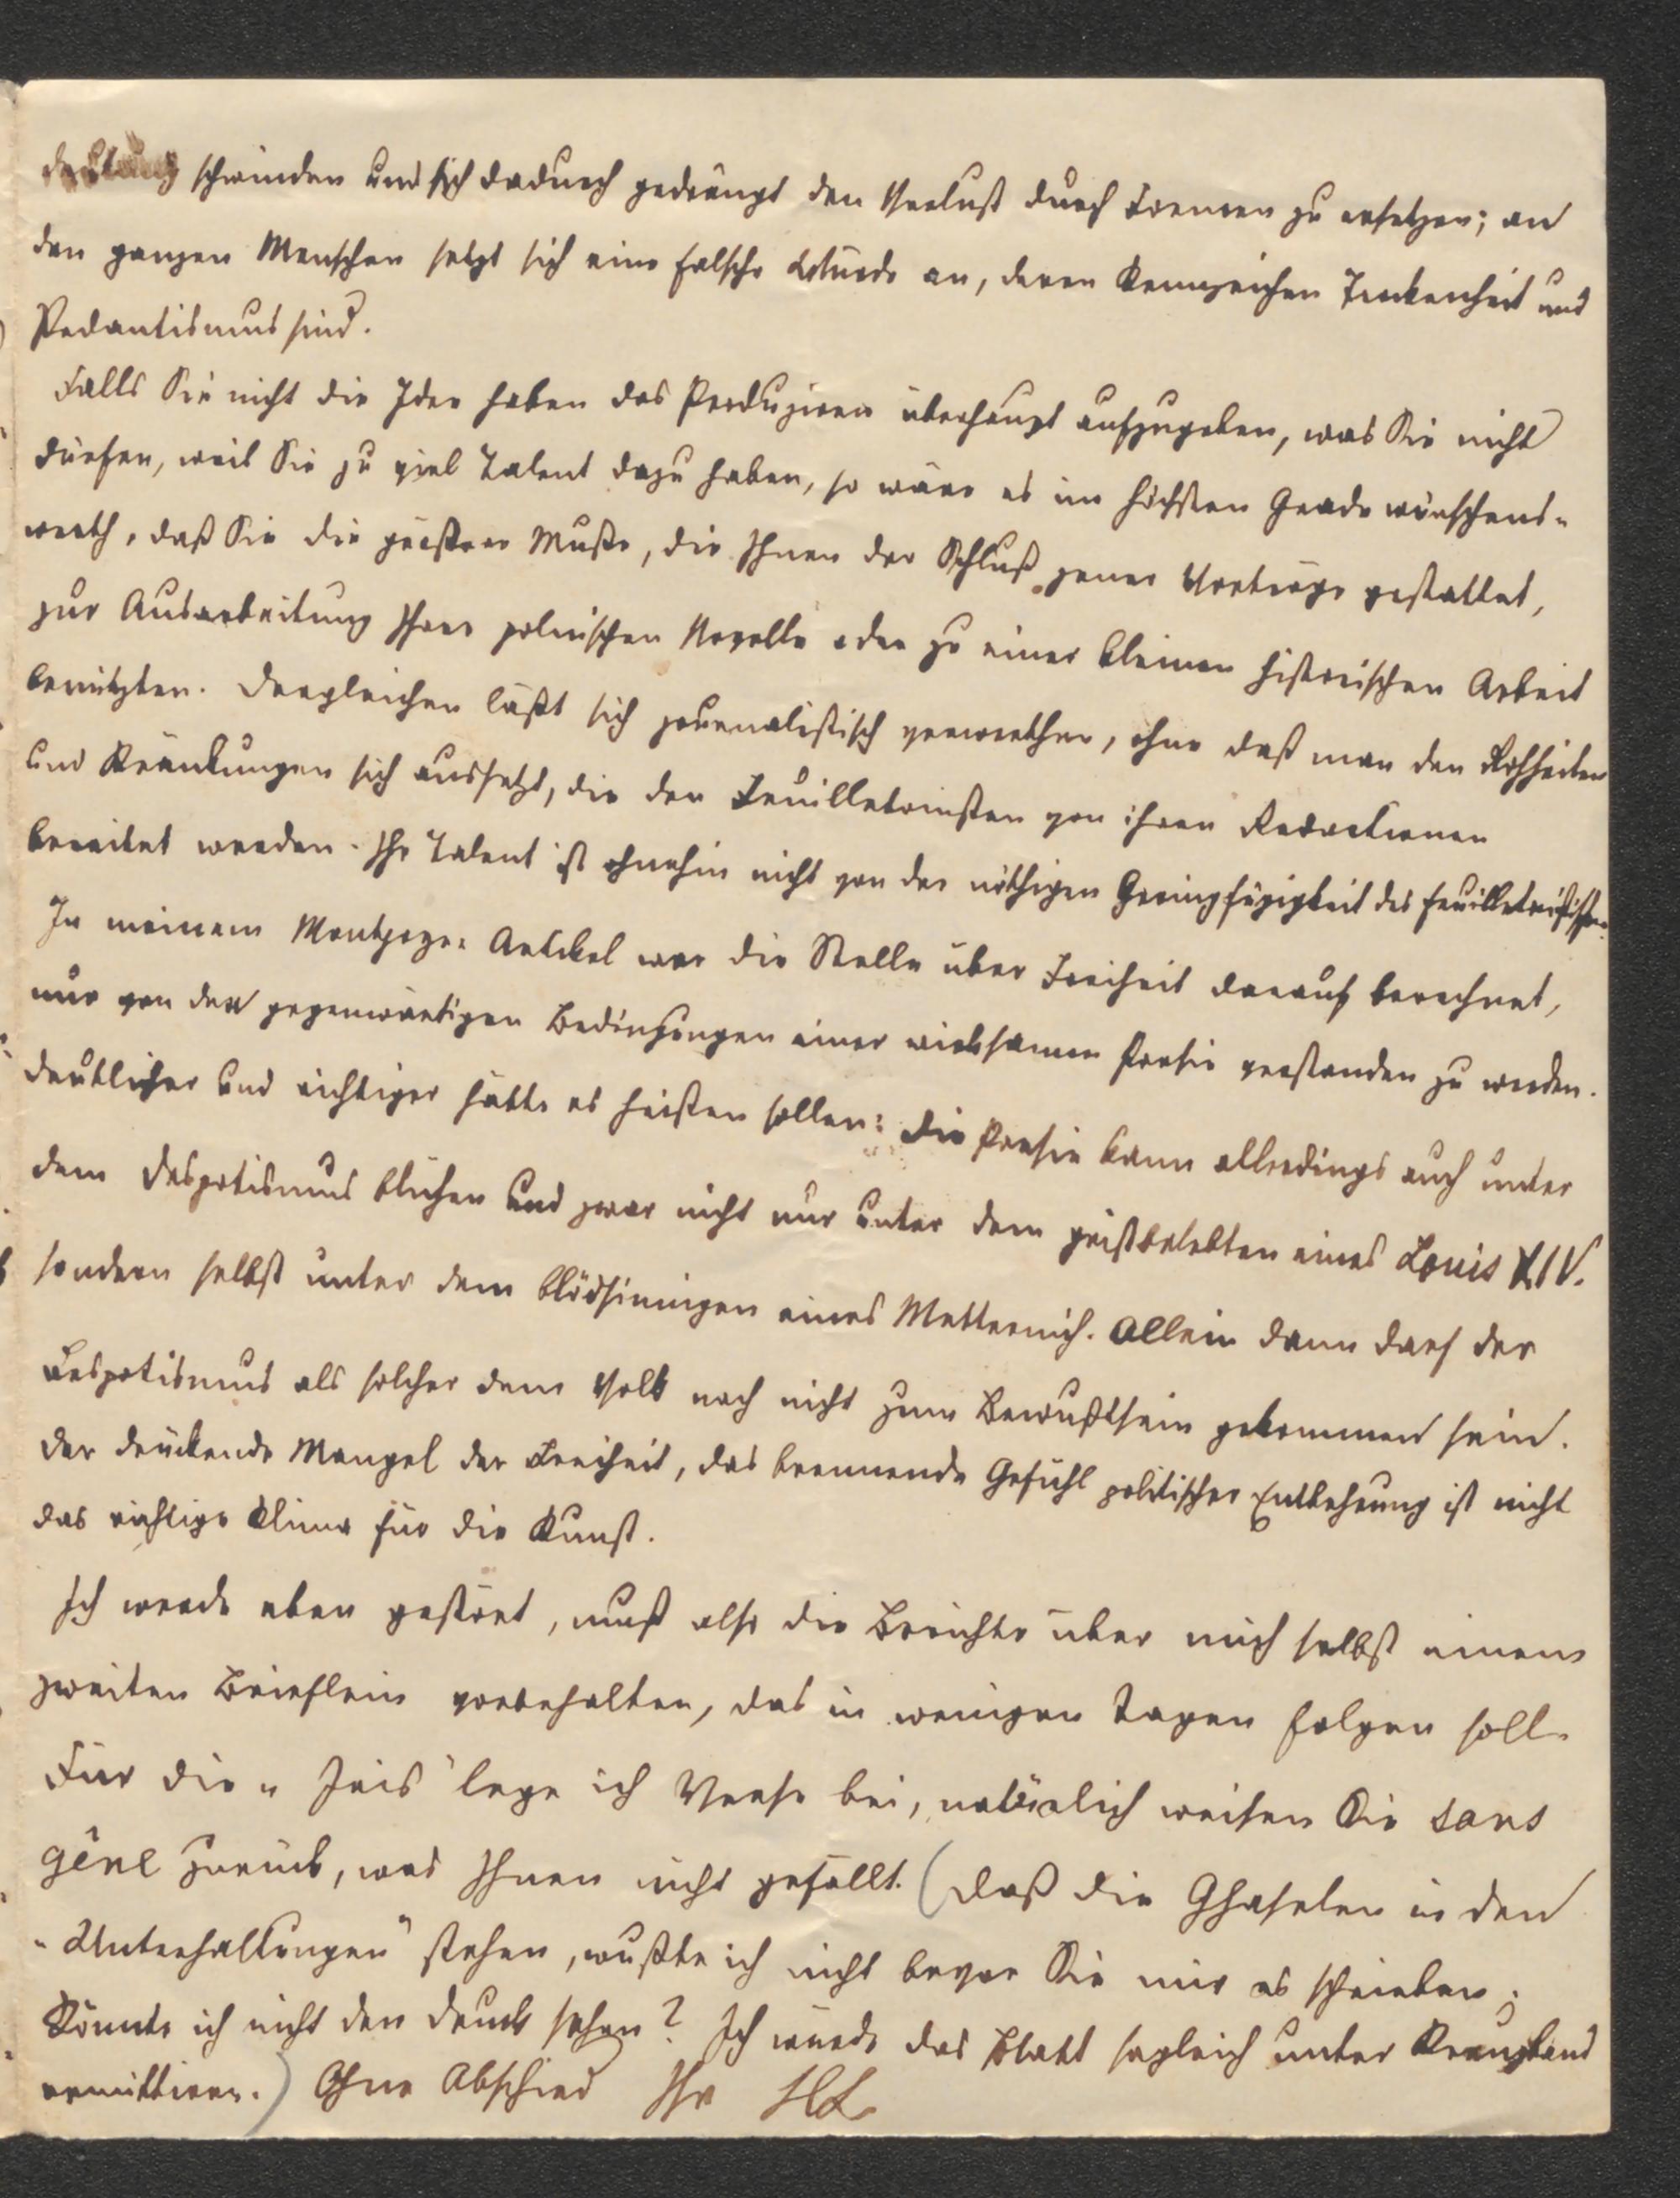 deutung schwinden und sich dadurch gedrängt den Verlust durch Formen zu ersetzen; an
den ganzen Menschen setzt sich eine falsche Würde an, deren Kennzeichen Trockenheit und
Pedantismus sind.
Falls Sie nicht die Idee haben das Produziren überhaupt aufzugeben, was Sie nicht
dürfen, weil Sie zu viel Talent dazu haben, so wäre es im höchsten Grade wünschens-
werth, daß Sie die größere Muße, die Ihnen der Schluß jener Vorträge gestattet,
zur Ausarbeitung Ihrer polnischen Novelle oder zu einer kleinen historischen Arbeit
benützten. Dergleichen läßt sich journalistisch verwerthen, ohne daß man den Rohheiten
und Kränkungen sich aussetzt, die den Feuilletonisten von ihren Redactionen
bereitet werden. Ihr Talent ist ohnehin nicht von der nöthigen Geringfügigkeit des Feuilletonistischen.
In meinem Artikel war die Stelle über Freiheit darauf berechnet,
nur von den gegenwärtigen Bedingungen einer wirksamen Poesie verstanden zu werden.
Deutlicher und richtiger hätte es heißen sollen: Die Poesie kann allerdings auch unter
dem Despotismus blühen und zwar nicht nur unter dem geistbelebten eines Louis XIV.
sondern selbst unter dem blödsinnigen eines Metternich. Allein dann darf der
Despotismus als solcher dem Volk noch nicht zum Bewußtsein gekommen sein.
Der drückende Mangel der Freiheit, das brennende Gefühl politischer Entbehrung ist nicht
das richtige Klima für die Kunst.
Ich werde eben gestört, muß also die Berichte über mich selbst einem
zweiten Brieflein vorbehalten, das in wenigen Tagen folgen soll.
Für die „Iris" lege ich Verse bei, natürlich weisen Sie sans
gêne zurück, was Ihnen nicht gefällt. (Daß die Ghaselen in den
„Unterhaltungen" stehen, wußte ich nicht bevor Sie mir es schrieben;
Könnte ich nicht den Druck sehen? Ich würde das Blatt sogleich unter Kreuzband
remittiren.) Ohne Abschied Ihr HL